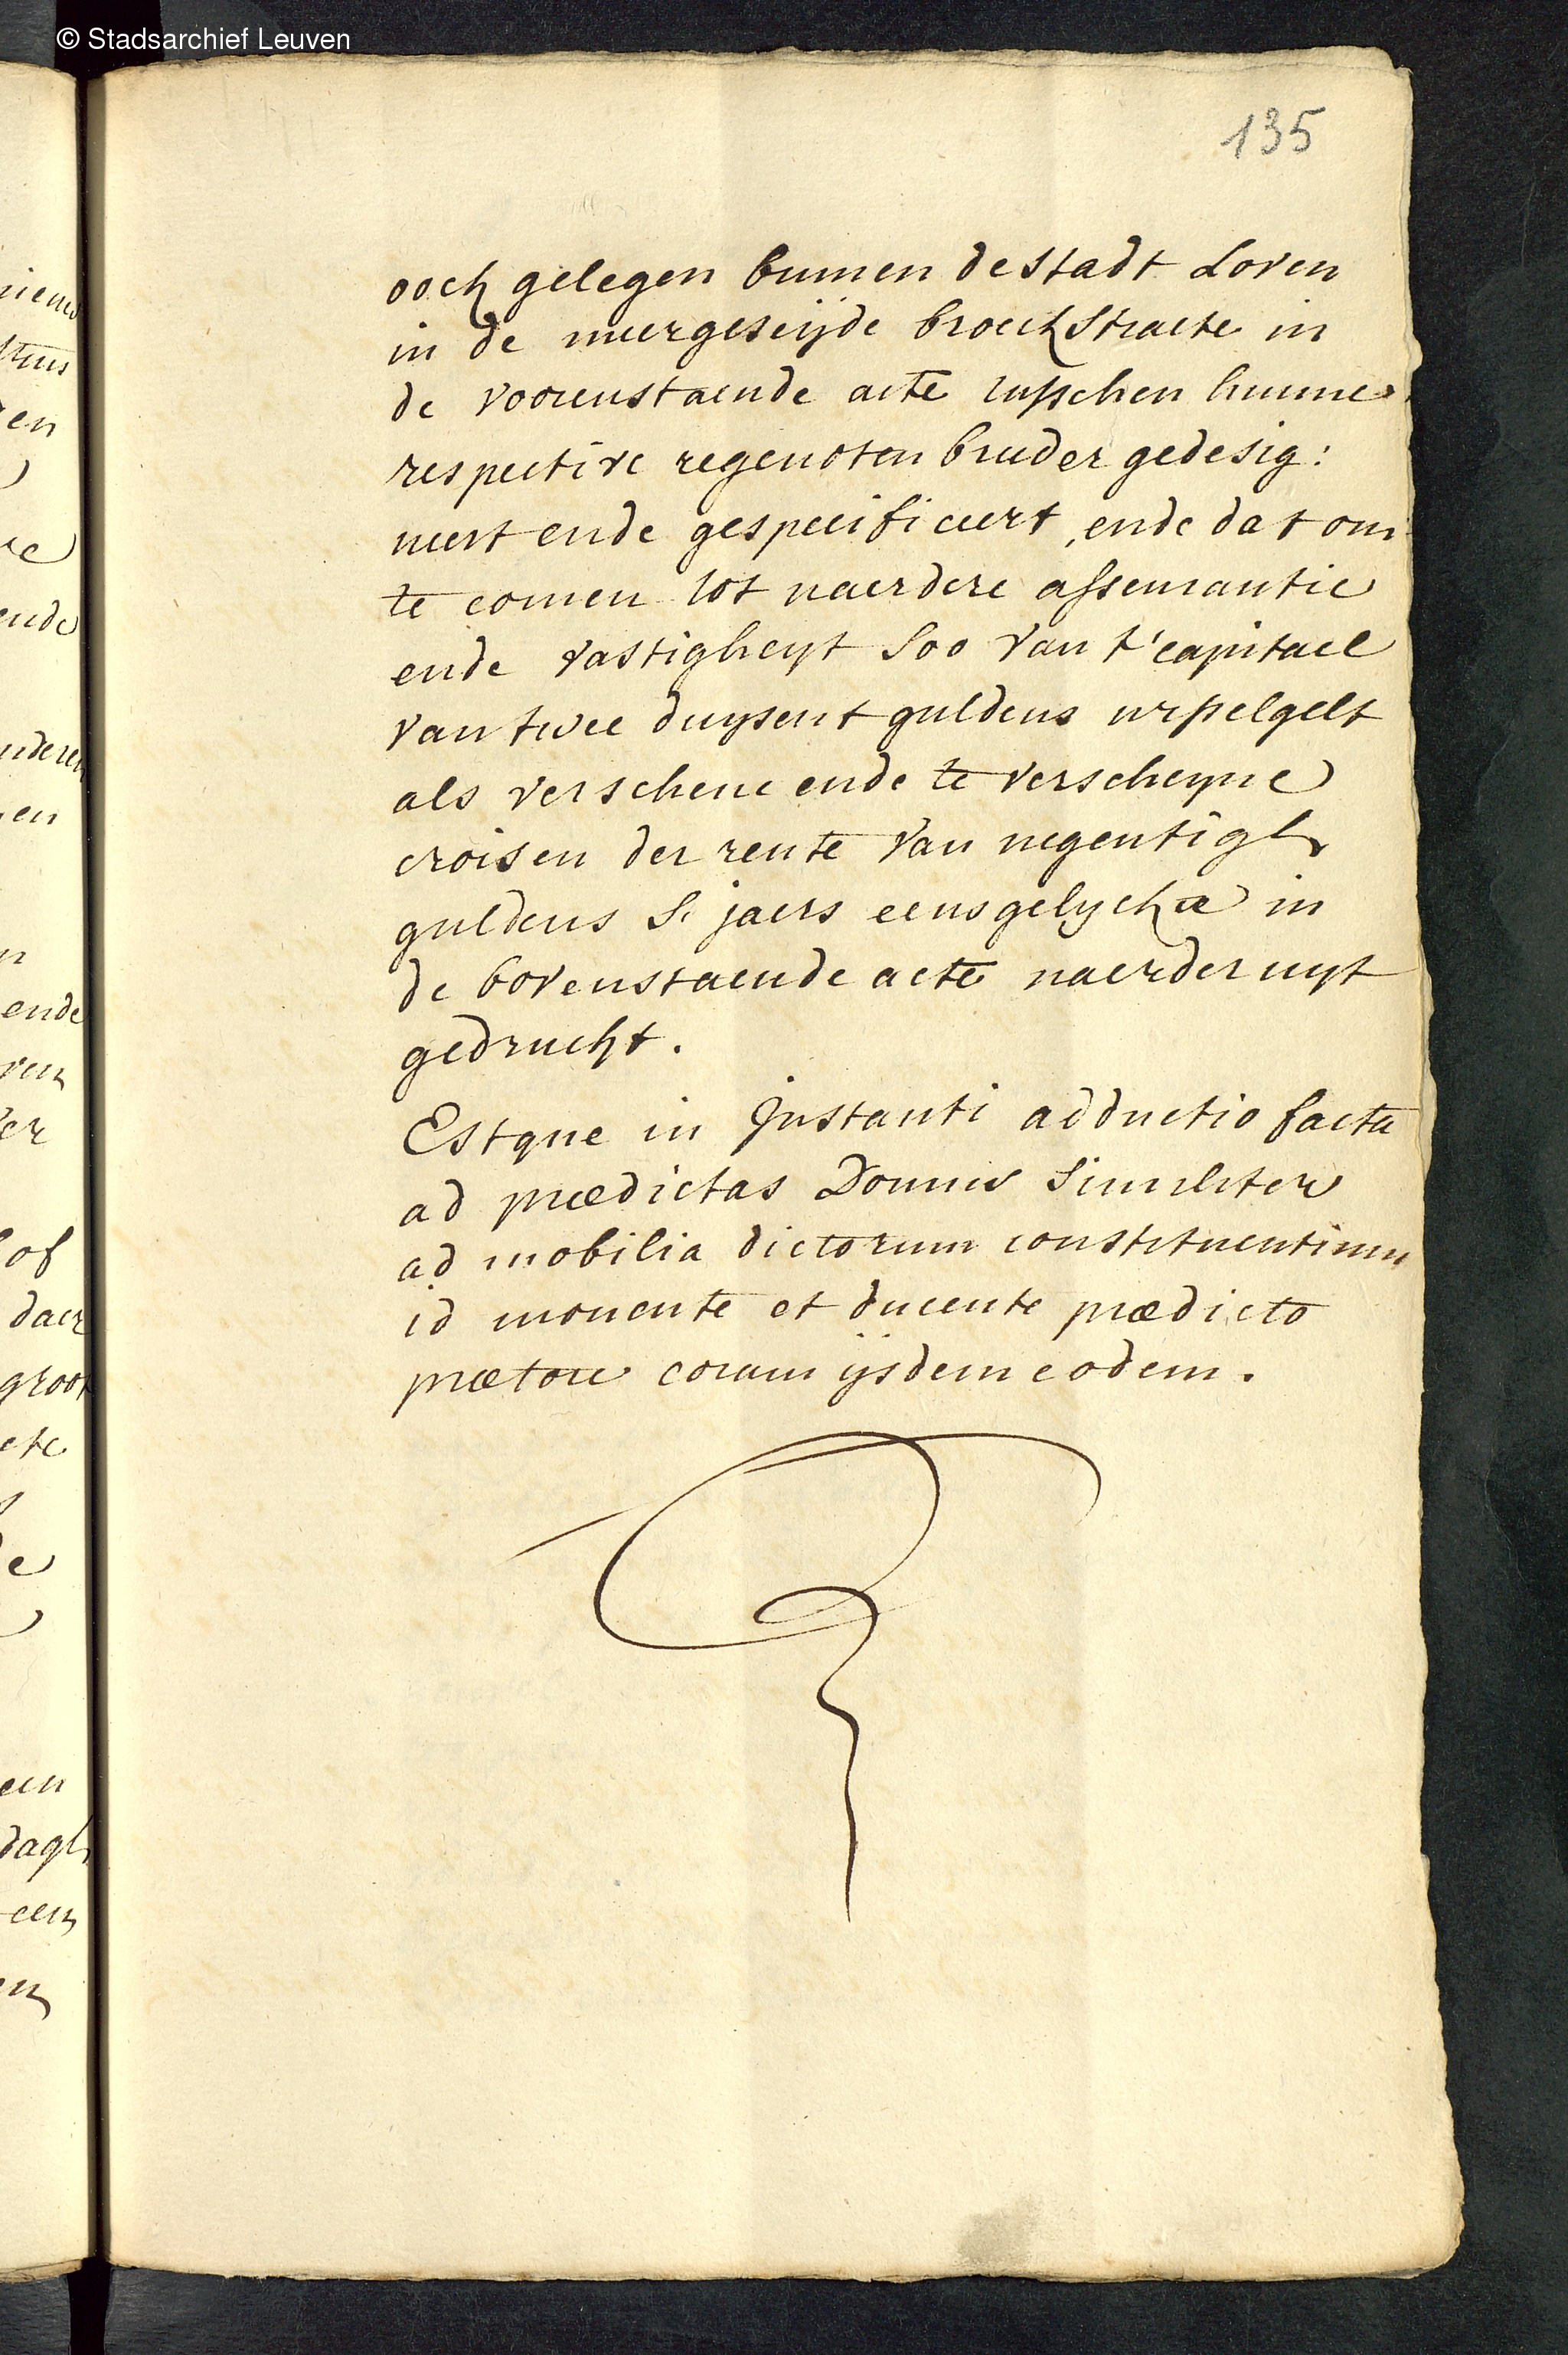 © Stadsarchief Leuven
135
oock gelegen binnen de stadt Loven
in de meergeseijde broeckstraete in
de voorenstaende acte tusschen hunne
respective regenoten breeder gedesig:
neert ende gespecificeert, ende dat om
te comen tot naerdere asseurantie
ende vastigheyt soo van t'capitael
van twee duysent guldens wisselgelt
als verschene ende te verscheyne
croisen der rente van negentigh
guldens s' jaers eensgelyckx in
de bovenstaende acte naerder uyt
gedruckt.
Estque in instanti adductio facta
ad prædictas Domus similiter
ad mobilia dictorum constituentium
id monente et ducente prædicto
prætore coram ijsdem eodem.